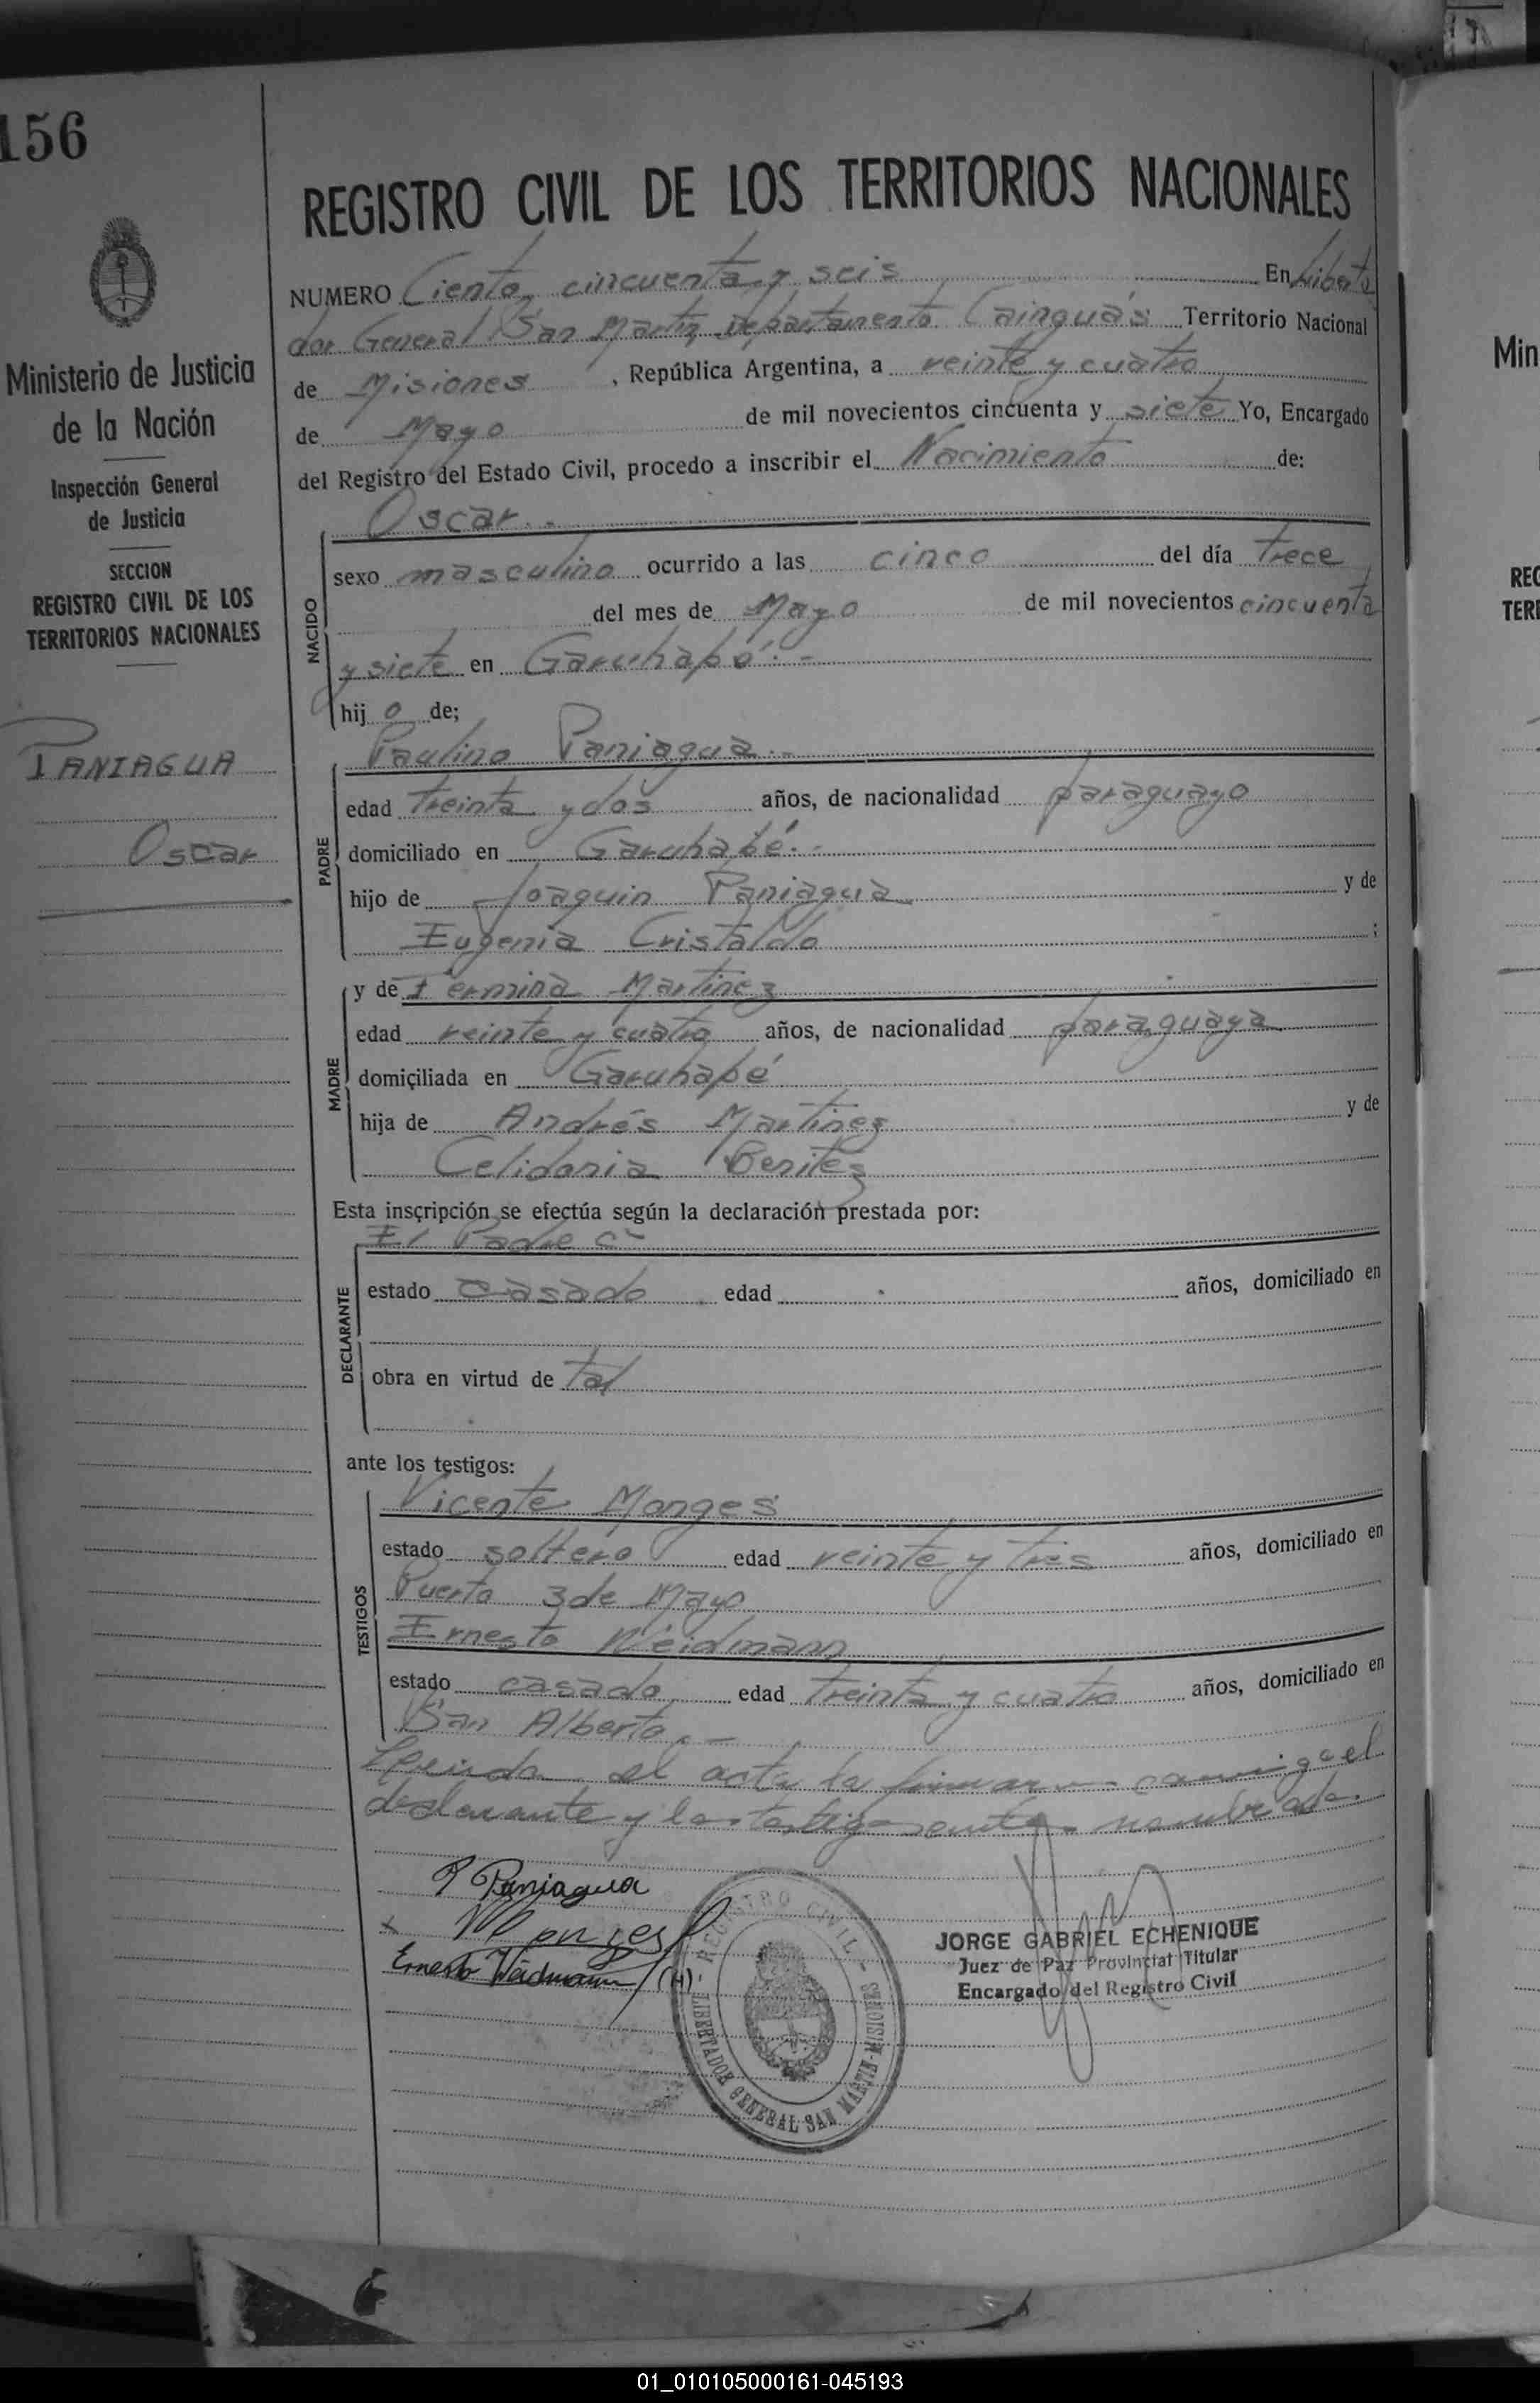 156
Ministerio de Justicia
de la Nación
Inspección General
de Justicia
SECCION
REGISTRO CIVIL DE LOS
TERRITORIOS NACIONALES
PANIAGUA
Oscar
REGISTRO CIVIL DE LOS TERRITORIOS NACIONALES
NUMERO Ciento cincuenta y seis En Liberta
dor General San Martín, Departamento Cainguás Territorio Nacional
de Misiones, República Argentina, a veinte y cuatro
de Mayo de mil novecientos cincuenta y siete Yo, Encargado
del Registro del Estado Civil, procedo a inscribir el Nacimiento de:
NACIDO
Oscar.-
sexo masculino ocurrido a las cinco del día trece
del mes de Mayo de mil novecientos cincuenta
y siete en Garuhapé.-
hijo de;
PADRE
Paulino Paniagua.-
edad treinta y dos años, de nacionalidad paraguayo
domiciliado en Garuhapé.-
hijo de Joaquin Paniagua y de
Eugenia Cristaldo ;
MADRE
y de Fermina Martinez
edad veinte y cuatro años, de nacionalidad paraguaya
domiciliada en Garuhapé
hija de Andrés Martinez y de
Celidonia Benitez
Esta inscripción se efectúa según la declaración prestada por:
DECLARANTE
El Padre
estado casado edad años, domiciliado en
obra en virtud de tal
ante los testigos:
TESTIGOS
Vicente Monges
estado soltero edad veinte y tres años, domiciliado en
Puerto 3 de Mayo
Ernesto Weidmann
estado casado edad treinta y cuatro años, domiciliado en
San Alberto.-
Leida el acta la firmaron conmigo el
declarante y los testigos nombrados.
P Paniagua
x Monges
Ernesto Weidmann (H).
REGISTRO CIVIL - LIBERTADOR GENERAL SAN MARTIN - MISIONES
JORGE GABRIEL ECHENIQUE
Juez de Paz Provincial Titular
Encargado del Registro Civil
Min
REG
TERI
01_010105000161-045193